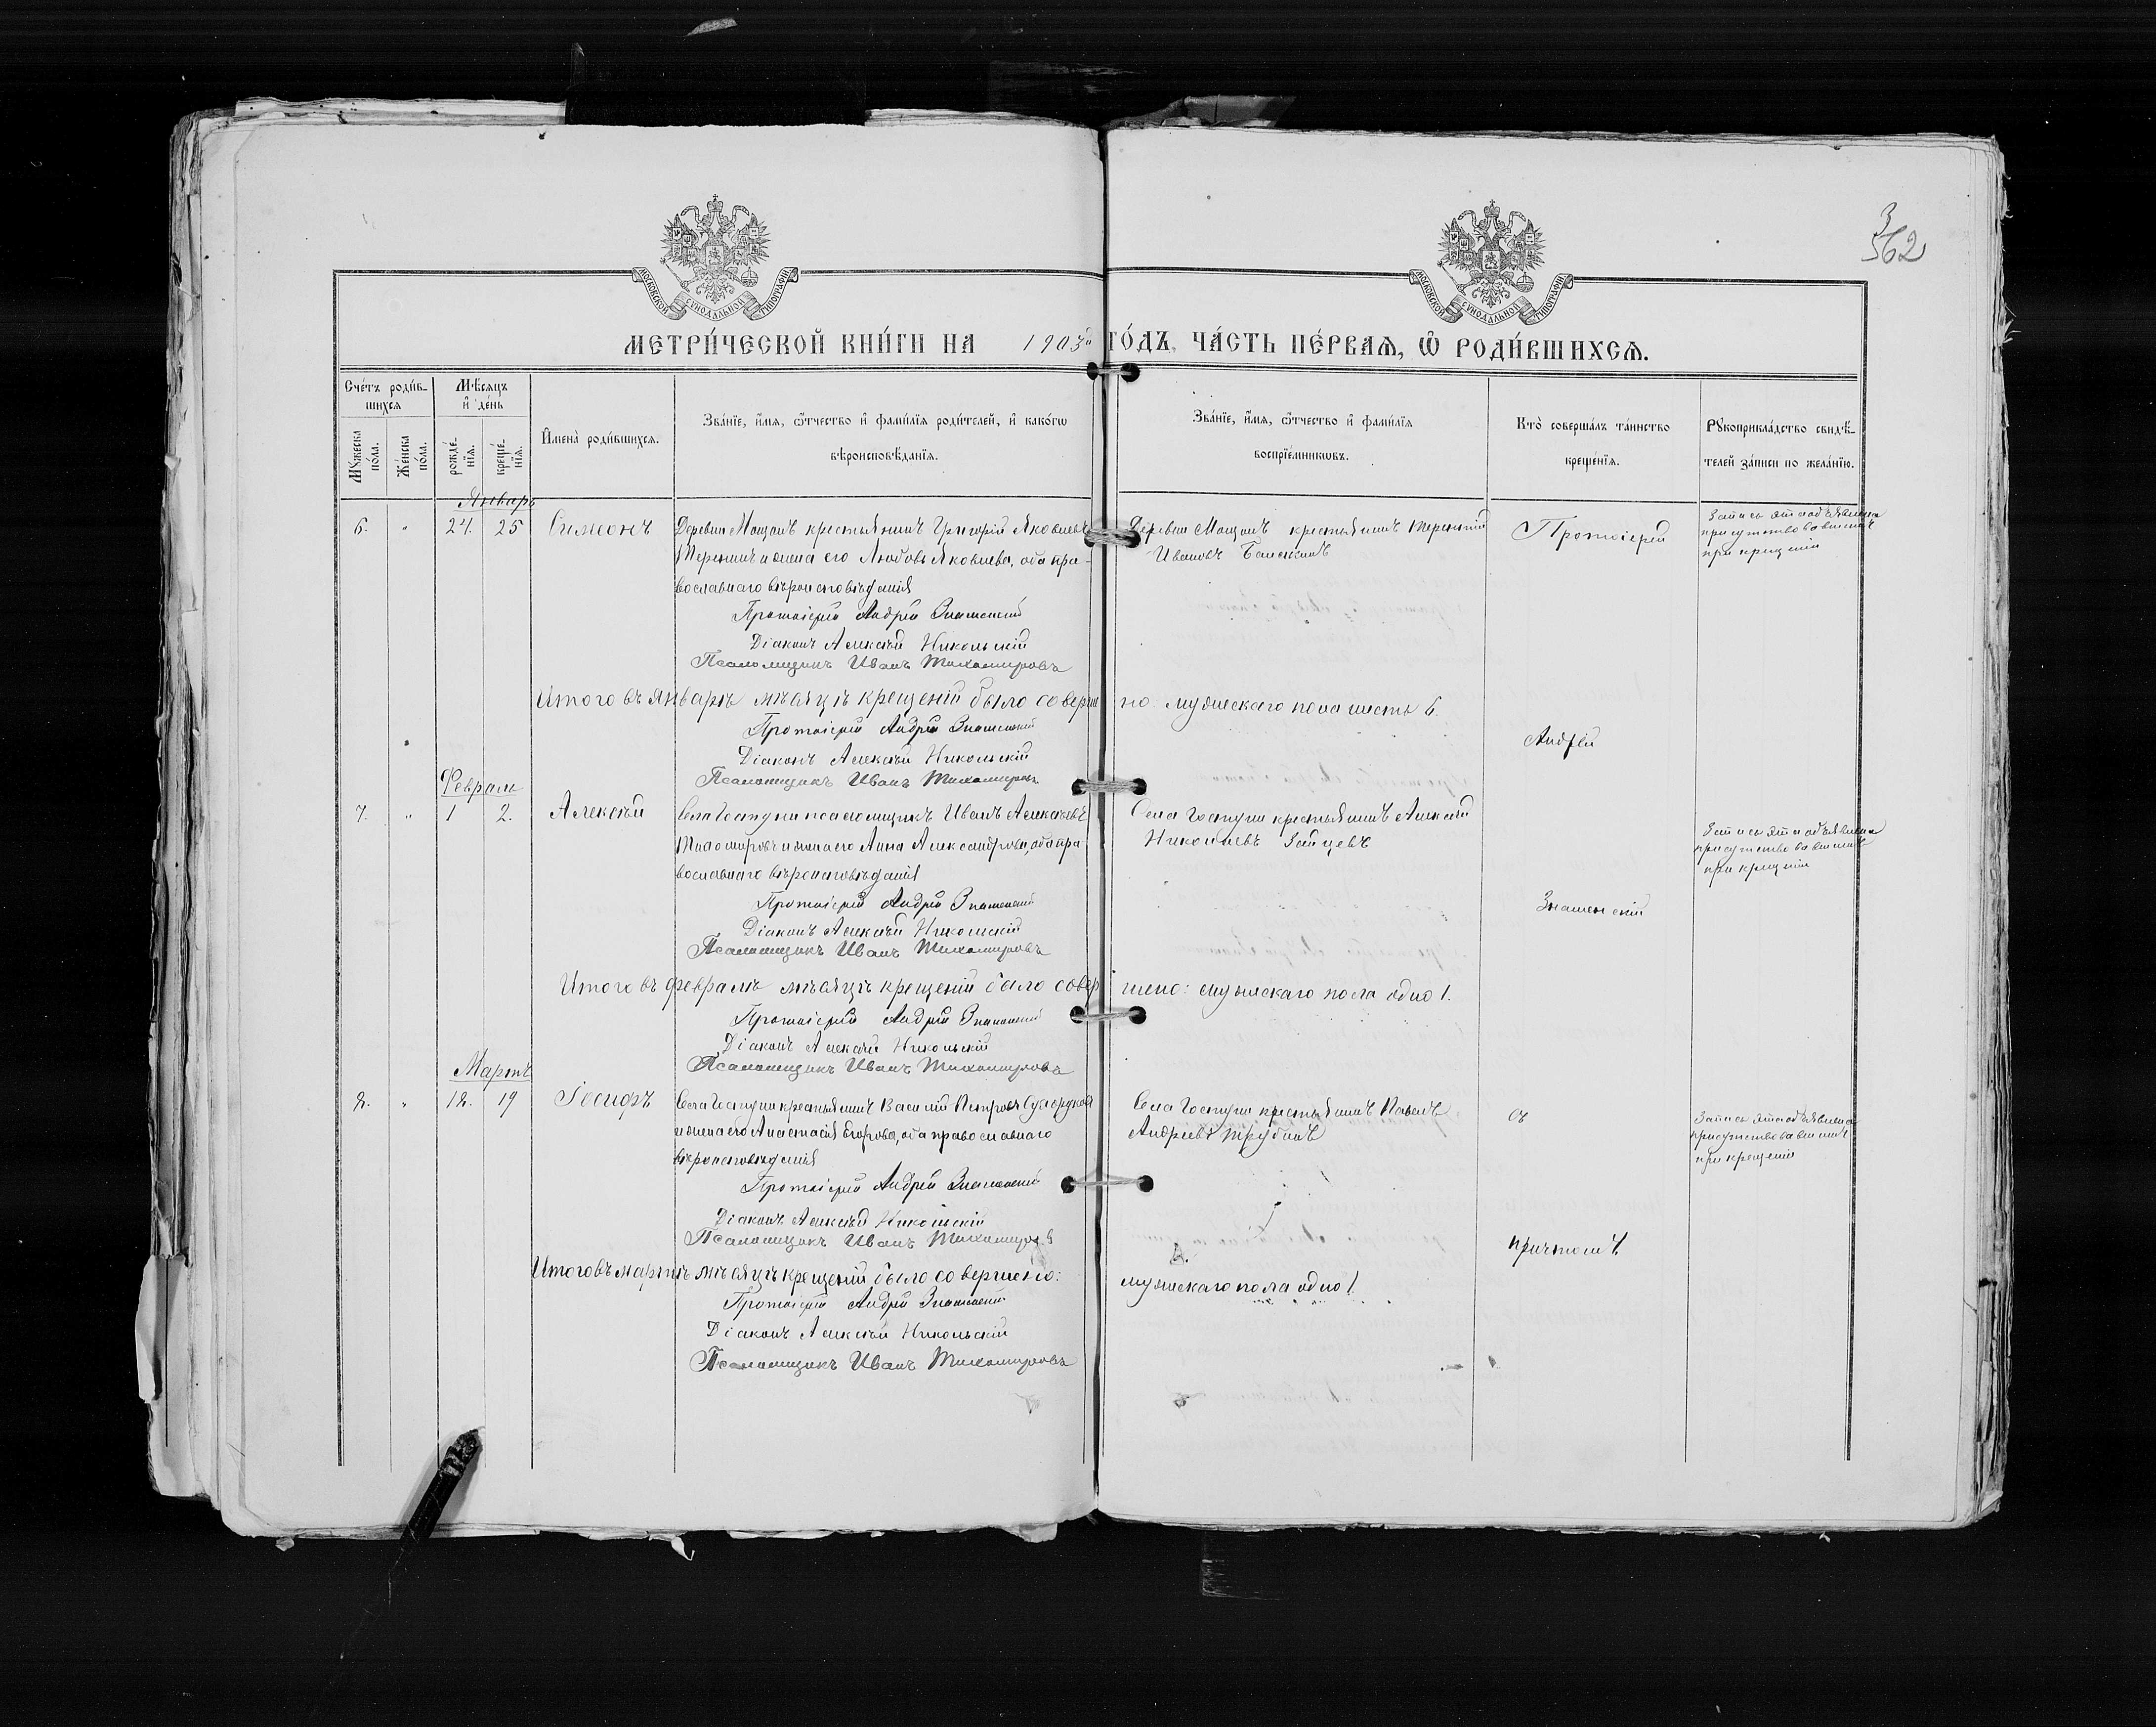 3
562
МОСКОВСКОЙ СѴНОДАЛЬНОЙ ТИПОГРАФІИ
МОСКОВСКОЙ СѴНОДАЛЬНОЙ ТИПОГРАФІИ
МЕТРИ́ЧЕСКОЙ КНИ́ГИ НА 1903й ГО́ДЪ, ЧА́СТЬ ПЕ́РВАѦ, Ѿ РОДИ́ВШИХСѦ.
Сче́тъ роди́в-
шихсѧ
Мꙋ́жеска по́ла.
Же́нска по́ла.
Мѣ́сѧцъ
и҆ де́нь
рожде́-
нїѧ.
креще́-
нїѧ.
И҆мена̀ роди́вшихсѧ.
Зва́нїе, и҆́мѧ, ѻ҆́тчество и҆ фами́лїѧ роди́телей, и҆ како́гѡ
вѣроисповѣ́данїѧ.
Зва́нїе, и҆́мѧ, ѻ҆́тчество и҆ фами́лїѧ
воспрїе́мникѡвъ.
Кто̀ соверша́лъ та́инство
креще́нїѧ.
Рꙋкоприкла́дство свидѣ́-
телей за́писи по жела́нїю.
Январь
6. " 24. 25 Симеонъ
Деревни Мощонъ крестьянинъ Григорій Яковлевъ
Теренинъ и жена его Любовь Яковлева, оба пра-
вославнаго вѣроисповѣданія
Протоіерей Андрей Знаменскій
Діаконъ Алексѣй Никольскій
Псаломщикъ Иванъ Тихомировъ
Деревни Мощонъ крестьянинъ Терентій
Ивановъ
Протоіерей
Запись эта объявлена
присутствовавшимъ
при крещеніи
Итого въ январѣ мѣсяцѣ крещеній было соверше но: мужескаго пола шесть 6.
Протоіерей Андрей Знаменскій
Діаконъ Алексѣй Никольскій
Псаломщикъ Иванъ Тихомировъ
Андрей
Февраль
7. " 1 2. Алексѣй
Села Гостуни псаломщикъ Иванъ Алексѣевъ
Тихомировъ и жена его Анна Александрова, оба пра
вославнаго вѣроисповѣданія
Протоіерей Андрей Знаменскій
Діаконъ Алексѣй Никольскій
Псаломщикъ Иванъ Тихомировъ
Села Гостуни крестьянинъ Алексѣй
Николаевъ Зайцевъ
Знаменскій
Запись эта объявлена
присутствовавшимъ
при крещеніи
Итого въ февралѣ мѣсяцѣ крещеній было совер шено: мужескаго пола одно 1.
Протоіерей Андрей Знаменскій
Діаконъ Алексѣй Никольскій
Псаломщикъ Иванъ Тихомировъ
Мартъ
8. " 18. 19 Іосифъ
Села Гостуни крестьянинъ Василій Петровъ Сухорукой
и жена его Анастасія Егорова, оба православнаго
вѣроисповѣданія
Протоіерей Андрей Знаменскій
Діаконъ Алексѣй Никольскій
Псаломщикъ Иванъ Тихомировъ
Села Гостуни крестьянинъ Павелъ
Андреевъ Трубинъ
съ
Запись эта объявлена
присутствовавшимъ
при крещеніи
причтомъ
Итого въ мартѣ мѣсяцѣ крещеній было совершено: мужескаго пола одно 1.
Протоіерей Андрей Знаменскій
Діаконъ Алексѣй Никольскій
Псаломщикъ Иванъ Тихомировъ